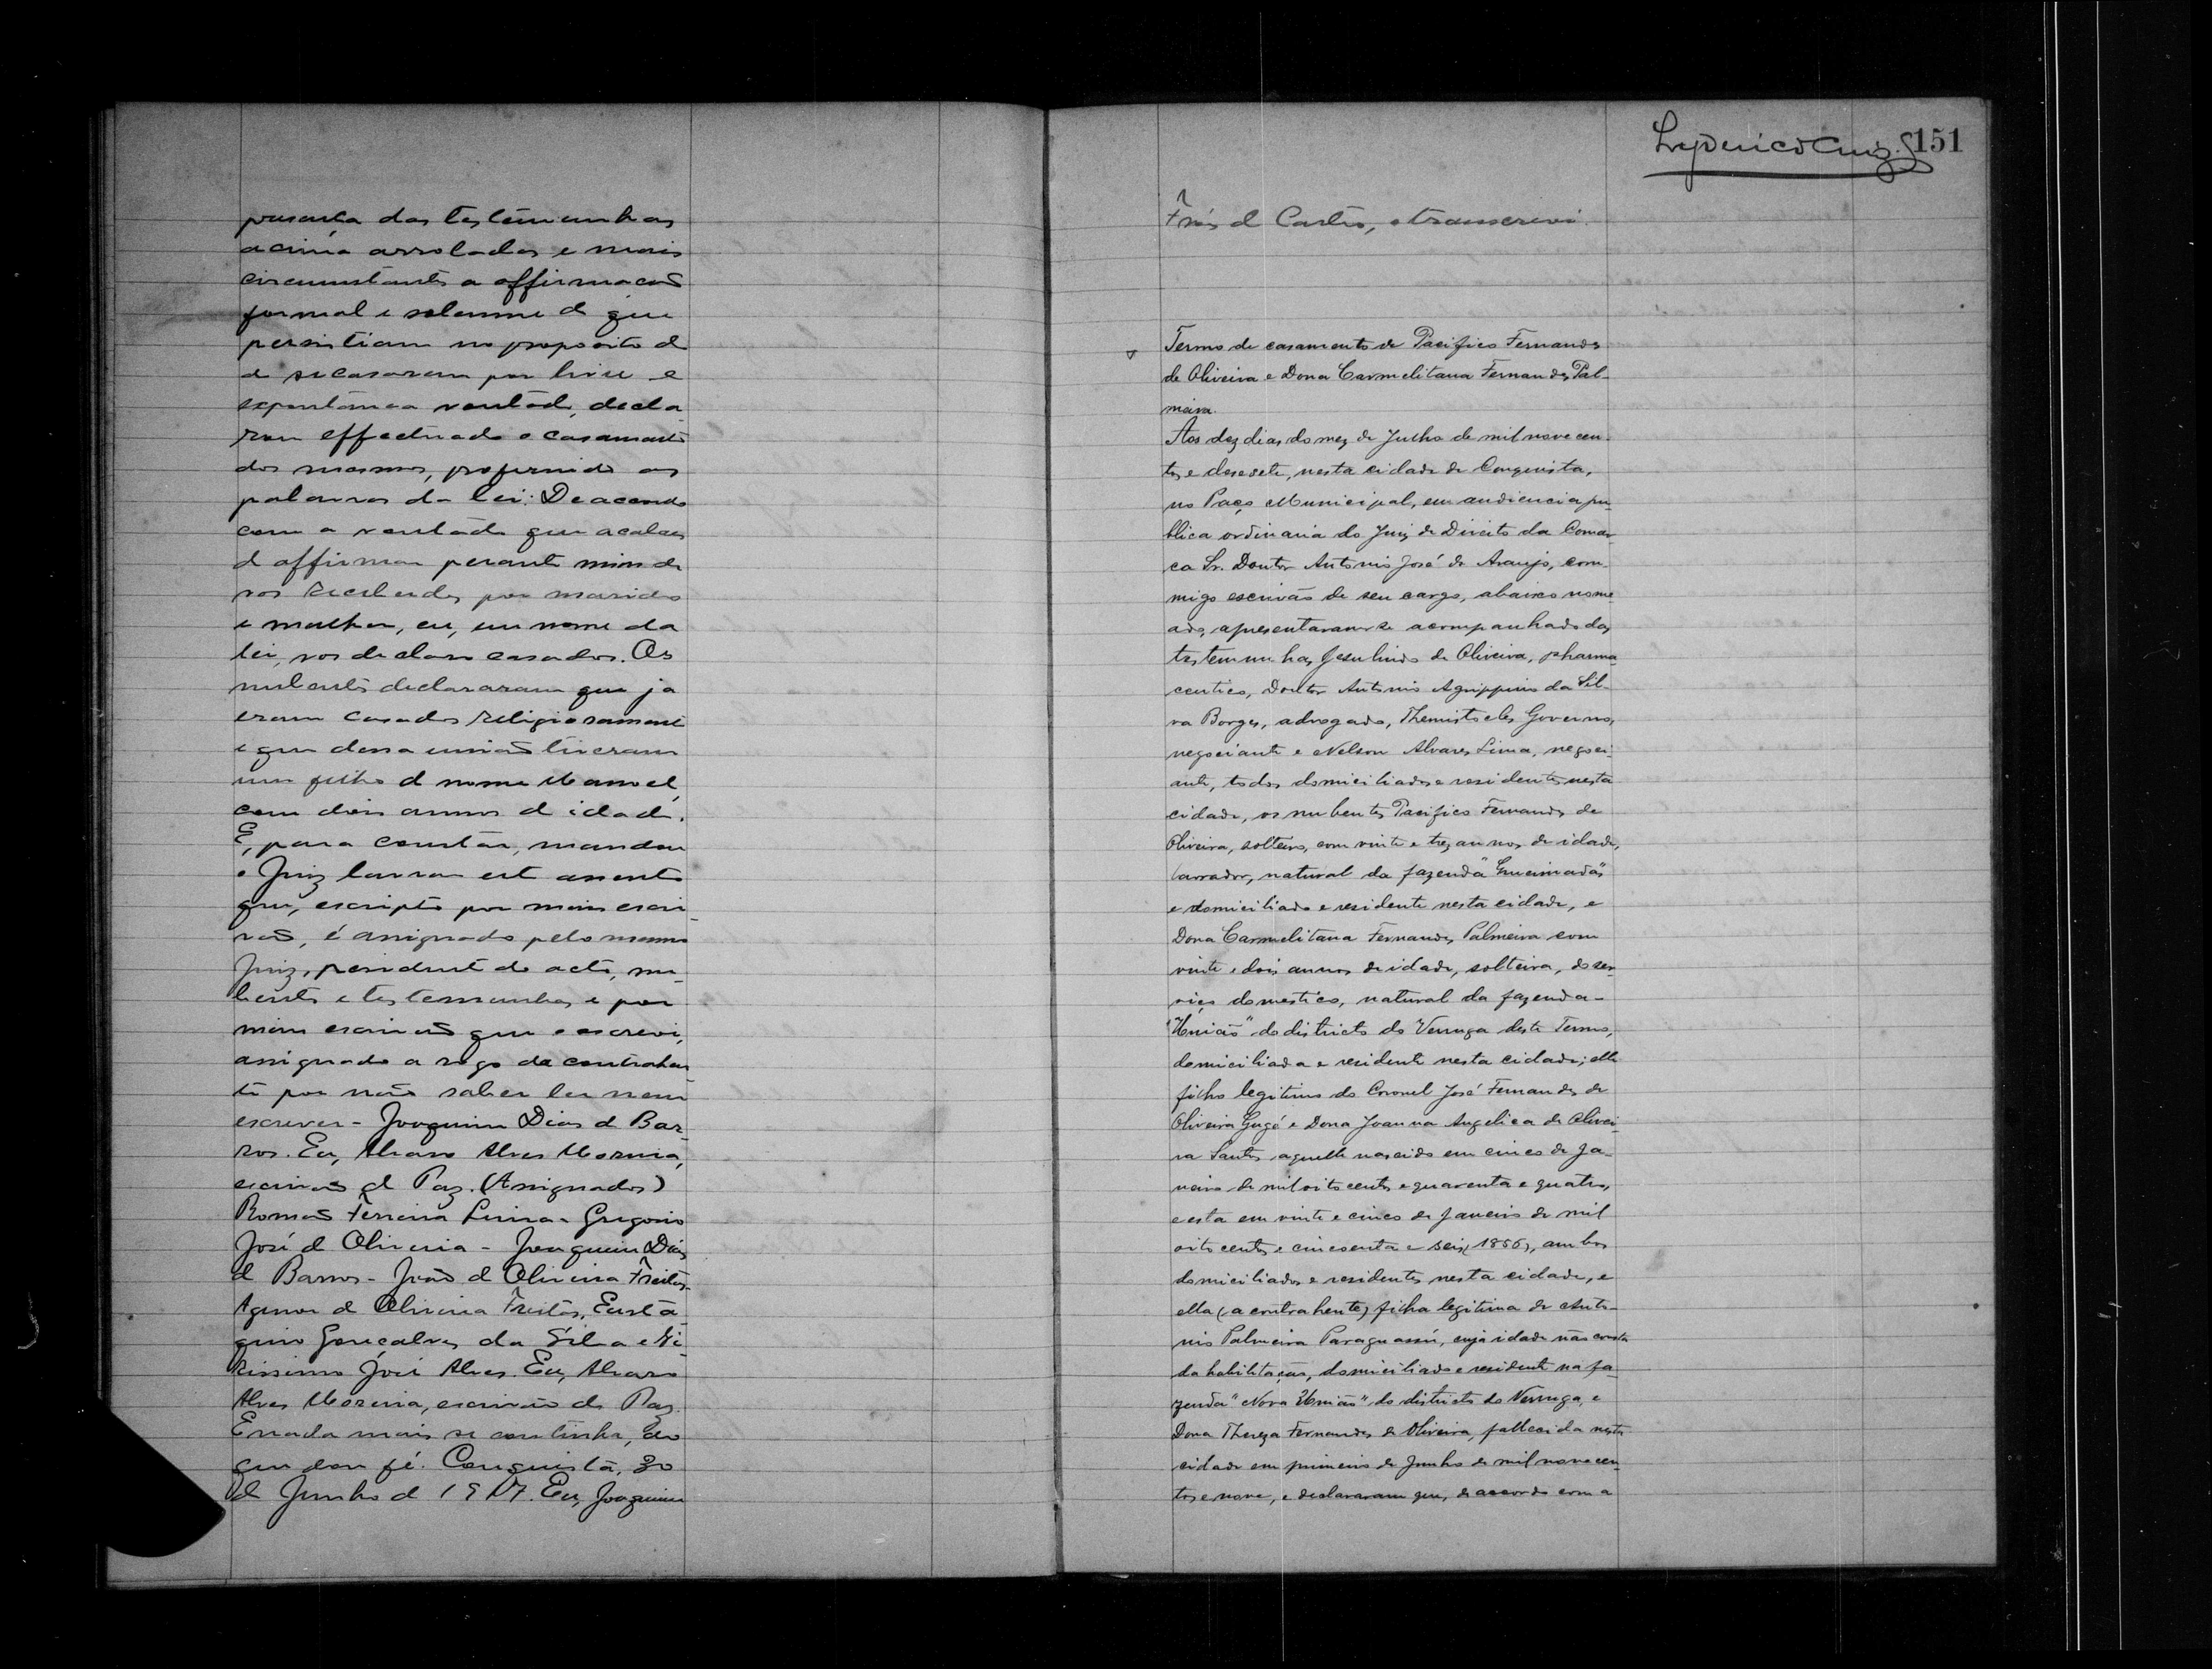 presença das testemunhas
acima arroladas e mais
circumstantes a affirmacão
formal e solemne d que
persistiam no proposito d
d se casaram por livre e
espontanea vontade, decla
rou effectuado o casamento
dos mesmos, proferindo as
palavras da lei: De accordo
com a vontade que acabaes
d affirmar perante mim de
vos receberdes por marido
e mulher, eu, em nome da
lei, vos declaro casados. Os
nubentes declararam que ja
eram casados religiosamente
e que dessa união tiveram
um filho d nome Manoel,
com dois annos d idade.
E, para constar, mandou
o Juiz lavrar este assento
que, escripto por mim escri
vão, é assignado pelo mesmo
Juiz, presidente do acto, nu-
bentes e testemunhas e por
mim escrivão que o escrevi,
assignado a rogo da contrahen
te por não saber ler nem
escrever - Joaquim Dias d Bar-
ros. Eu, Alvaro Alves Moreira,
escrivão d Paz. (Assignados)
Romão Ferreira Lima - Gregorio
José d Oliveira - Joaquim Dias
d Barros - João d Oliveira Freitas
Agenor d Oliveira Freitas, Eusta
quio Gonçalves da Silva e Ve-
rissimo José Alves. Eu, Alvaro
Alves Moreira, escrivão de Paz.
E nada mais se continha, do
que dou fé. Conquista, 30
d Junho d 1917. Eu, Joaquim
151
Fróes d Castro, o transcrevi.
Termo de casamento de Pacifico Fernandes
de Oliveira e Dona Carmelitana Fernandes Pal-
meira.
Aos dez dias do mez de Julho de mil nove cen-
tos e desesete, nesta cidade de Conquista,
no Paço Municipal, em audiencia pu-
blica ordinaria do Juiz de Direito da Comar
ca Sr. Doutor Antonio José de Araujo, com-
migo escrivão de seu cargo, abaixo nome
ado, apresentaram-se acompanhado das
testemunhas Jesulindo de Oliveira, pharma-
ceutico, Doutor Antonio Agrippino da Sil-
va Borges, advogado, Themistocles Governo,
negociante e Nelson Alvares Lima, negoci-
ante, todos domiciliados e residentes nesta
cidade, os nubentes Pacifico Fernandes de
Oliveira, solteiro, com vinte e tres annos de idade,
lavrador, natural da fazenda "Queimadas"
e domiciliado e residente nesta cidade, e
Dona Carmelitana Fernandes Palmeira com
vinte e dois annos de idade, solteira, do ser-
viço domestico, natural da fazenda -
"União" do districto do Verruga deste Termo,
domiciliada e residente nesta cidade; elle
filho legitimo do Coronel José Fernandes de
Oliveira Gugé e Dona Joanna Angelica de Olivei-
ra Santos aquelle nascido em cinco de Ja-
neiro de mil oito centos e quarenta e quatro,
e esta em vinte e cinco de Janeiro de mil
oito centos e cincoenta e seis (1856), ambos
domiciliados e residentes nesta cidade, e
ella (a contrahente) filha legitima de Anto-
nio Palmeira Paraguassú, cuja idade não consta
da habilitação, domiciliado e residente na fa-
zenda "Nova União" do districto do Verruga, e
Dona Thereza Fernandes de Oliveira, fallecida nesta
cidade em primeiro de Junho de mil nove cen-
tos e nove, e declararam que, de accordo com a